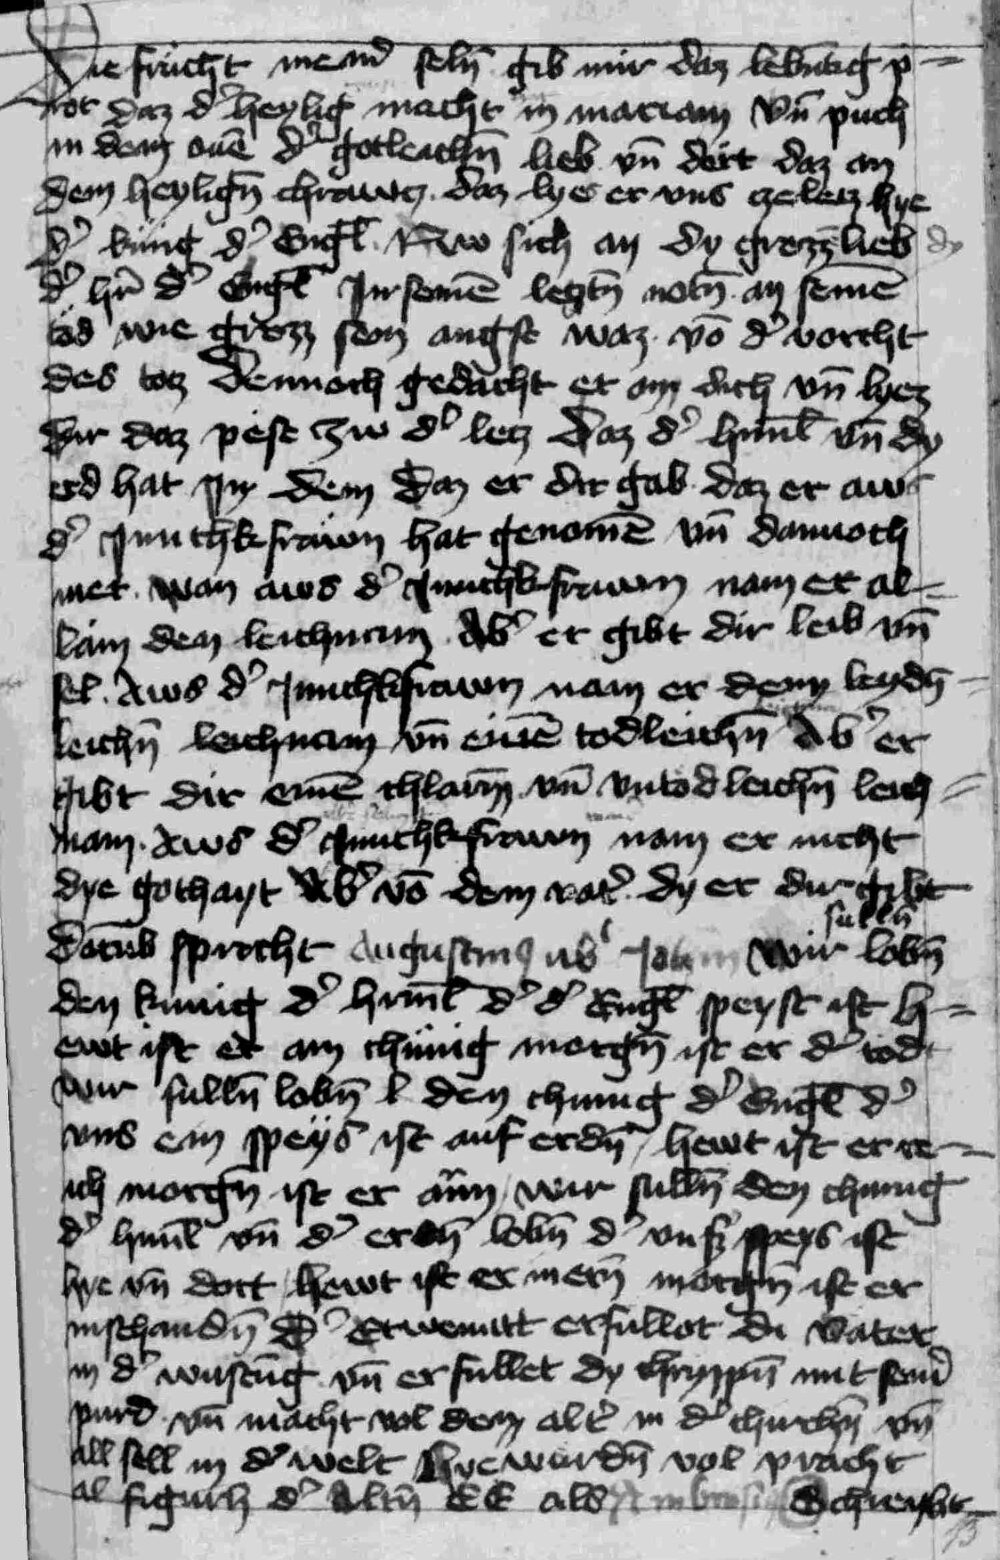 Die frücht meinˀ seln̄ gib mir daz lebn̄tig p=
rot daz dˀ heylig macht in mariam vn̄ puch
in dem ouē dˀ gotleichn̄ lieb vn̄ dert daz an
dem heylign̄ chrawcz. daz lyes er vns ze lecz hye
dˀ kunig dˀ Engl̄. Rew sich an dy grozz lieb dy
dˀ hr̄ dˀ Engl̄ In seinē lecztn̄ notn̄ an seinē
tod wie grozz sein angst waz. vō dˀ vorcht
des tocz Dennoch gedächt er an dich vn̄ lyez
dir daz pest zw dˀ lecz daz dˀ himl̄ vn̄ dy
erd hat In dem daz er dir gab daz er aws
dˀ Junchkfrawn hat genomē vn̄ dannoch
mer. wan aws dˀ Junchkfrawn nam er al=
lain den leichnam Abˀ er gibt dir leib vn̄
sel. Aws dˀ Junchkfrawn nam er deny leydn̄=
leichn̄ leichnam vn̄ einē todleichn̄ Abˀ er
gibt dir einē chlarn̄ vn̄ vntodleichn̄ leich=
nam. Aws dˀ Junchkfrawn nam er nicht
dye gothayt Abˀ vō dem vatˀ dy er dir gibt
Darūb spricht Augustinꝰ ubˀ Joh wir sulln̄ lobn̄
den kunig dˀ himl̄ dˀ dˀ Engl̄ speyst ist h=
ewt ist er am chünig morgn̄ ist er dˀ tod
wir sulln̄ lobn̄ den chunig dˀ Engl̄ dˀ
vns ein speys ist auf erdn̄ / hewt ist er re=
ich morgn̄ ist er arm / wir sulln̄ den chunig
dˀ himl̄ vn̄ dˀ erdn̄ lobn̄ dˀ vnsˀ speys ist
hye vn̄ dort hewt ist er morgn̄ ist er
dˀ erfullot di vater
in dˀ wüstūg vn̄ erfullet dy chrippn̄ mit seinˀ
purd vn̄ macht vol den altˀ in dˀ chirchn̄ vn̄
all sell in dˀ welt hye wurdn̄ vol pracht
al figurh dˀ Altn̄ EE als Ambrosiꝰ Schreybt